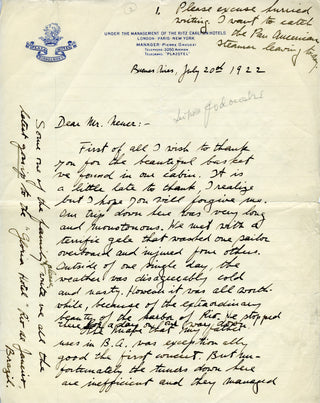 1.
Please excuse hurried
writing. I want to catch
the Pan American
steamer leaving today
UNDER THE MANAGEMENT OF THE RITZ CARLTON HOTELS
LONDON - PARIS - NEW YORK
MANAGER: PIERRE
TELEPHONE: 3200, AVENIDA
PLAZA HOTEL
BUENOS AIRES
Buenos Aires, July 20th 1922
Dear Mr. :-
First of all I wish to thank
you for the beautiful basket
we found in our cabin. It is
a little late to thank, I realize
but I hope you will forgive me.
Our trip down here was very long
and monotonous. We met with a
terrific gale that washed one sailor
overboard and injured four others.
Outside of one single day, the
weather was disagreeably cold
and nasty. However it was all worth-
while, because of the extraordinary
beauty of the harbor of Rio. We stopped
there for a day on our way down.
The that my father
uses in B.A. was exception ally
good the first concert. But un-
fortunately the tuners down here
are inefficient and they managed
Some one of the family will write
please
are all the
latest going to the "Gloria Hotel - Rio de Janeiro
Brazil